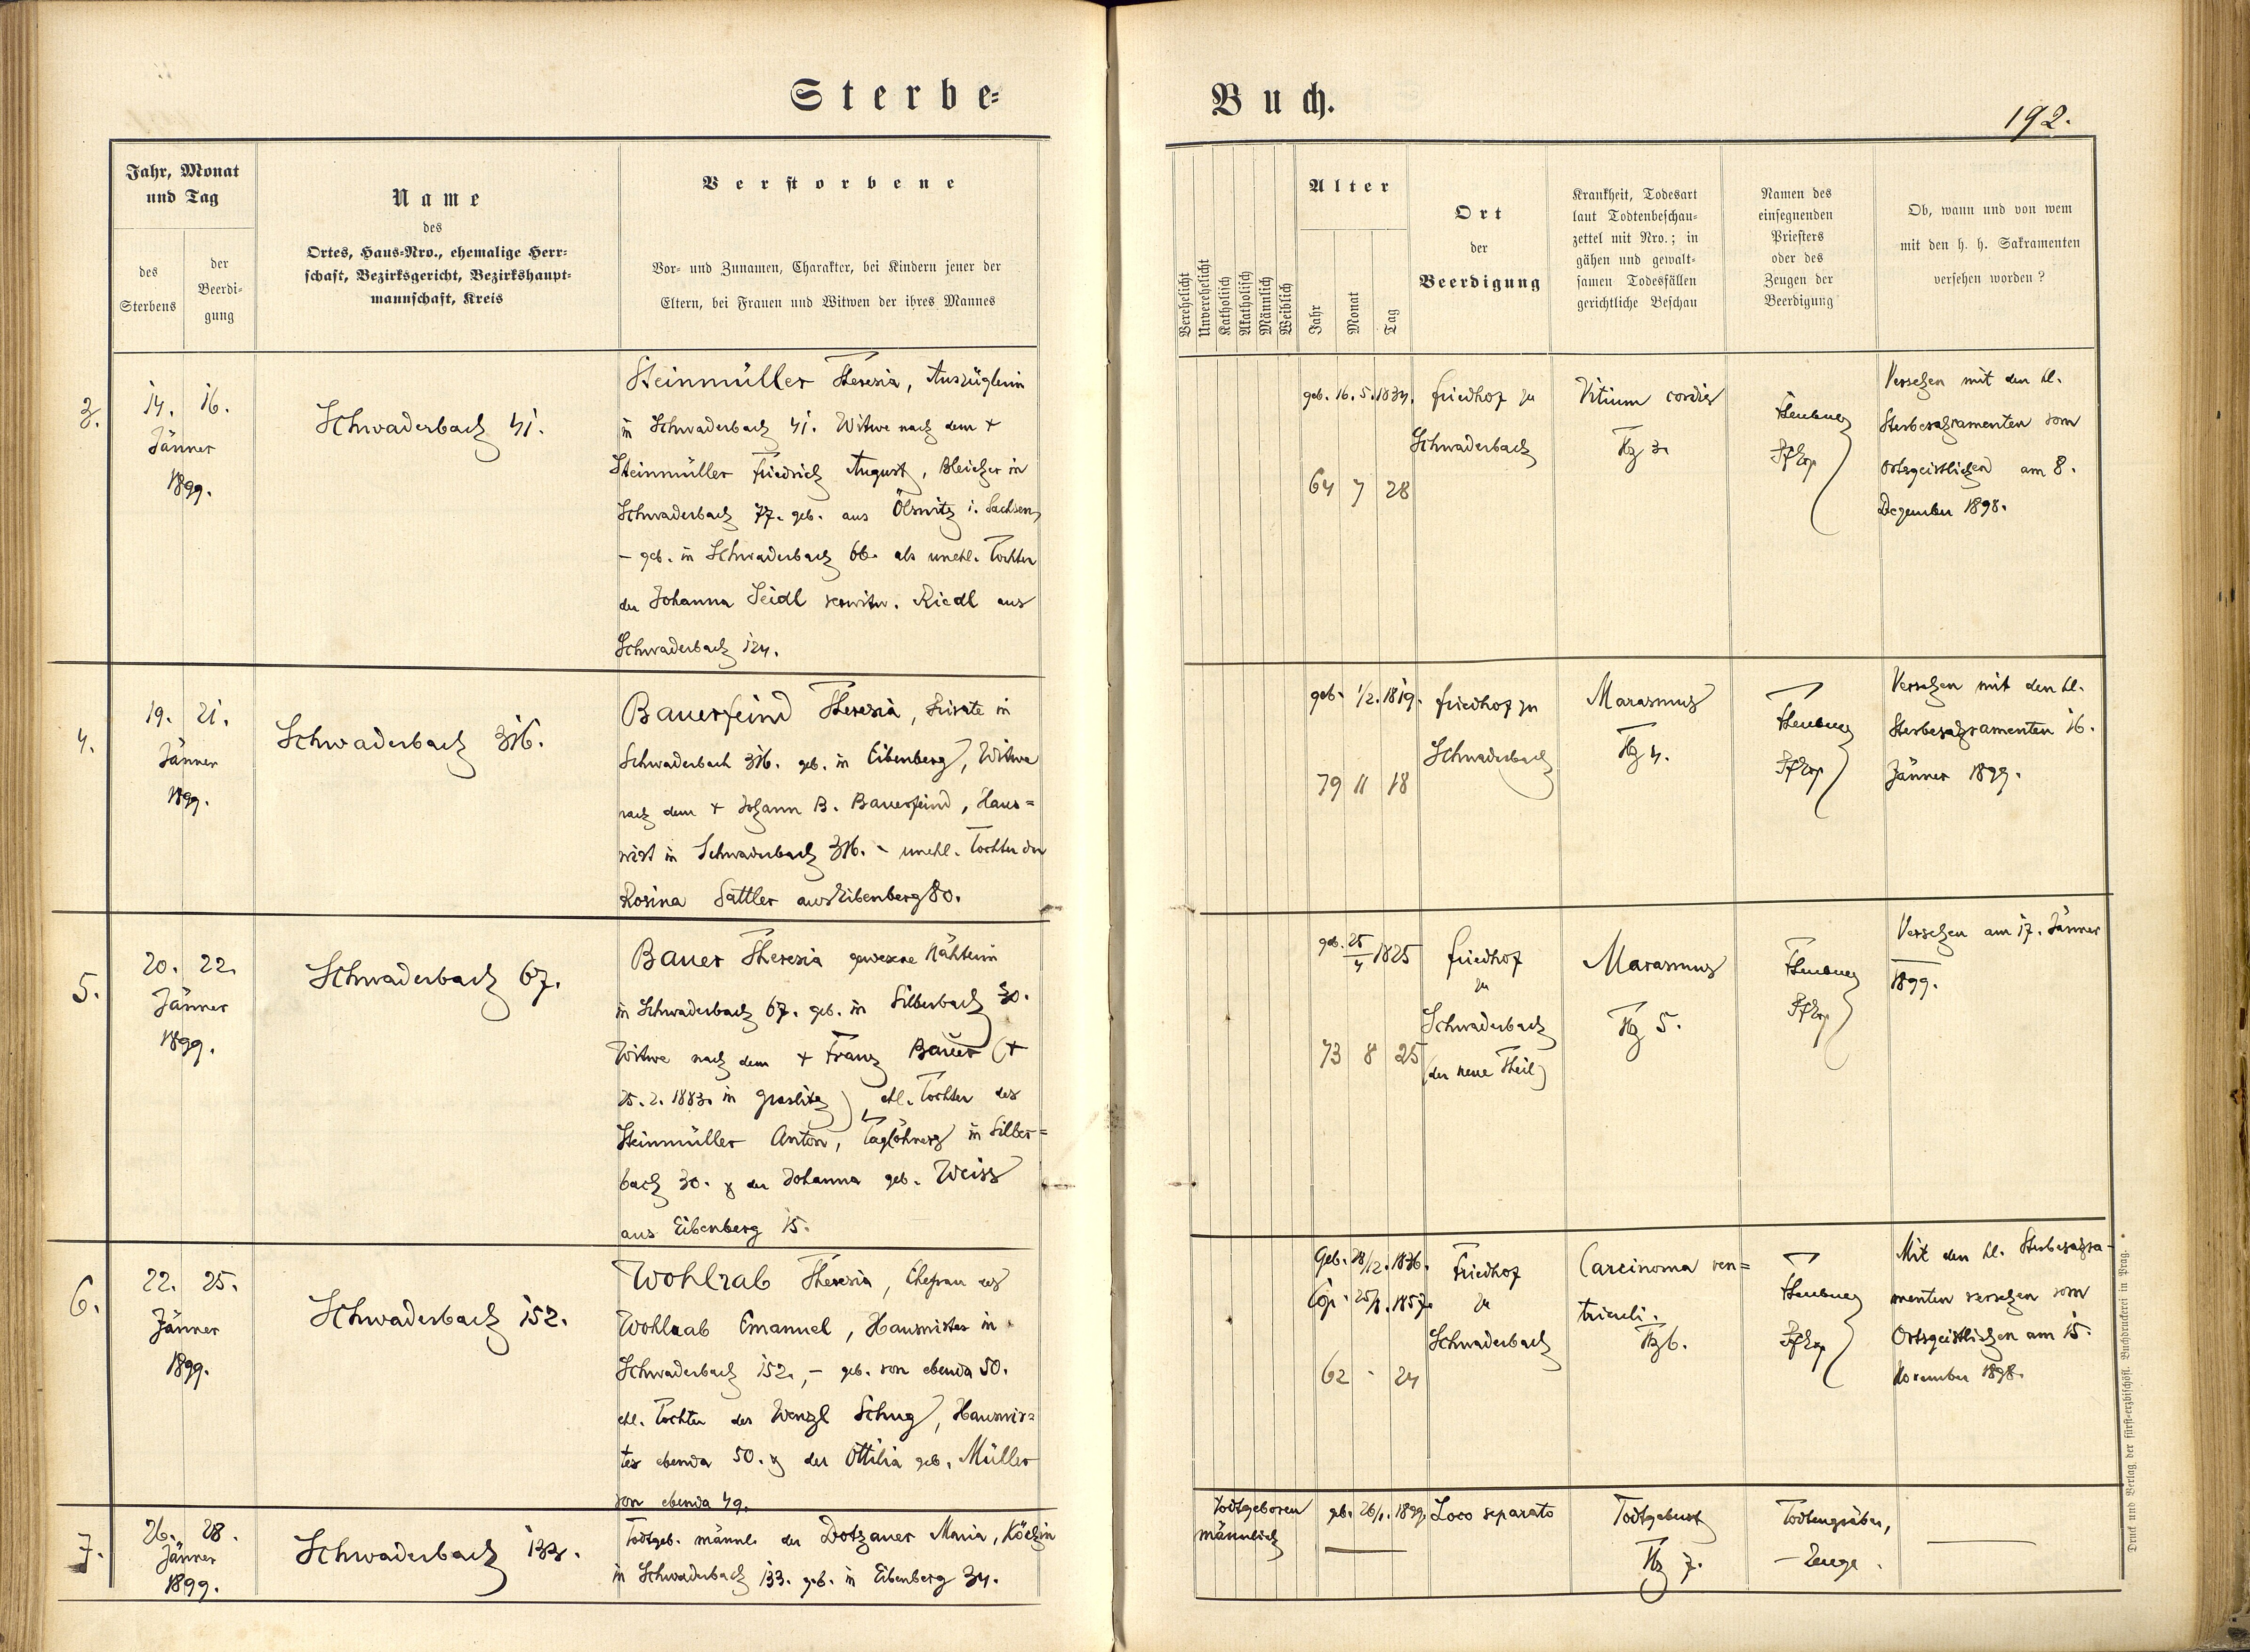 Sterbe=
Buch.
192.
Jahr, Monat
und Tag
des
Sterbens
der
Beerdi-
gung
Name
des
Ortes, Haus-Nro., ehemalige Herr-
schaft, Bezirksgericht, Bezirkshaupt-
mannschaft, Kreis
Verstorbene
Vor- und Zunamen, Charakter, bei Kindern jener der
Eltern, bei Frauen und Witwen der ihres Mannes
Verehelicht
Unverehelicht
Katholisch
Akatholisch
Männlich
Weiblich
Alter
Jahr
Monat
Tag
Ort
der
Beerdigung
Krankheit, Todesart
laut Todtenbeschau-
zettel mit Nro.; in
gähen und gewalt-
samen Todesfällen
gerichtliche Beschau
Namen des
einsegnenden
Priesters
oder des
Zeugen der
Beerdigung
Ob, wann und von wem
mit den h. h. Sakramenten
versehen worden?
3.
14. 16.
Jänner
1899.
Schwaderbach 41.
Steinmüller Theresia, Auszüglerin
in Schwaderbach 41. Witwe nach dem +
Steinmüller Friedrich August, Bleicher in
Schwaderbach 77. geb. aus Ölsnitz i. Sachsen,
- geb. in Schwaderbach 66. als unehl. Tochter
der Johanna Seidl verwitw. Riedl aus
Schwaderbach 124.
geb. 16. 5. 1834.
64 7 28
Friedhof zu
Schwaderbach
Vitium cordis
Tz 3.
Versehen mit den hl.
Sterbesakramenten vom
Ortsgeistlichen am 8.
Dezember 1898.
4.
19. 21.
Jänner
1899.
Schwaderbach 316.
Bauerfeind Theresia, Private in
Schwaderbach 316. geb. in Eibenberg, Witwe
nach dem + Johann B. Bauerfeind, Haus=
wirt in Schwaderbach 316. - unehl. Tochter der
Rosina Sattler aus Eibenberg 80.
geb. 1/2. 1819.
79 11 18
Friedhof zu
Schwaderbach
Marasmus
Tz 4.
Versehen mit den hl.
Sterbesakramenten 16.
Jänner 1899.
5.
20. 22.
Jänner
1899.
Schwaderbach 67.
Bauer Theresia gewesene Nähterin
in Schwaderbach 67. geb. in Silberbach 30.
Witwe nach dem + Franz Bauer (+
25. 2. 1883. in Graslitz) ehl. Tochter des
Steinmüller Anton, Taglöhners in Silber=
bach 30. & der Johanna geb. Weiss
aus Eibenberg 15.
geb. 25/4 1825
73 8 25
Friedhof
zu
Schwaderbach
(der neue Theil)
Marasmus
Tz 5.
Versehen am 17. Jänner
1899.
6.
22. 25.
Jänner
1899.
Schwaderbach 152.
Wohlrab Theresia, Ehefrau des
Wohlrab Emanuel, Hauswirtes in
Schwaderbach 152., - geb. von ebenda 50.
ehl. Tochter des Wenzl Schug, Hauswir=
tes ebenda 50. & der Ottilia geb. Müller
von ebenda 49.
Geb. 28/12. 1836.
Cop. 25/8. 1857.
62 - 24
Friedhof
zu
Schwaderbach
Carcinoma ven=
triculi.
Tz 6.
Mit den hl. Sterbesakra-
menten versehen vom
Ortsgeistlichen am 15.
November 1898.
7.
26. 28.
Jänner
1899.
Schwaderbach 133.
Todtgeb. männl. der Dotzauer Maria, Köchin
in Schwaderbach 133. geb. in Eibenberg 34.
Todtgeboren
männlich
geb. 26/1. 1899.
Loco separato
Todtgeburt
Tz 7.
Todtengräber,
- Zeuge.
Druck und Verlag der fürst-erzbischöfl. Buchdruckerei in Prag.